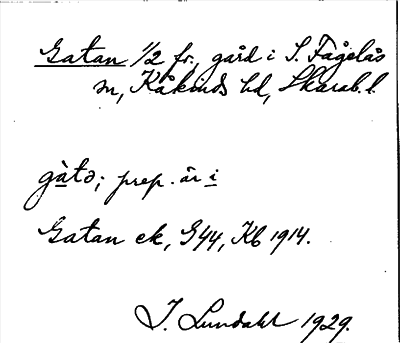 Gatan 1/2 fr., gård i S. Fågelås
sn, Kåkinds hd, Skarab. l.
gàtɔ; prep. är i
Gatan ek, G44, Kb 1914.
J. Lundahl 1929.